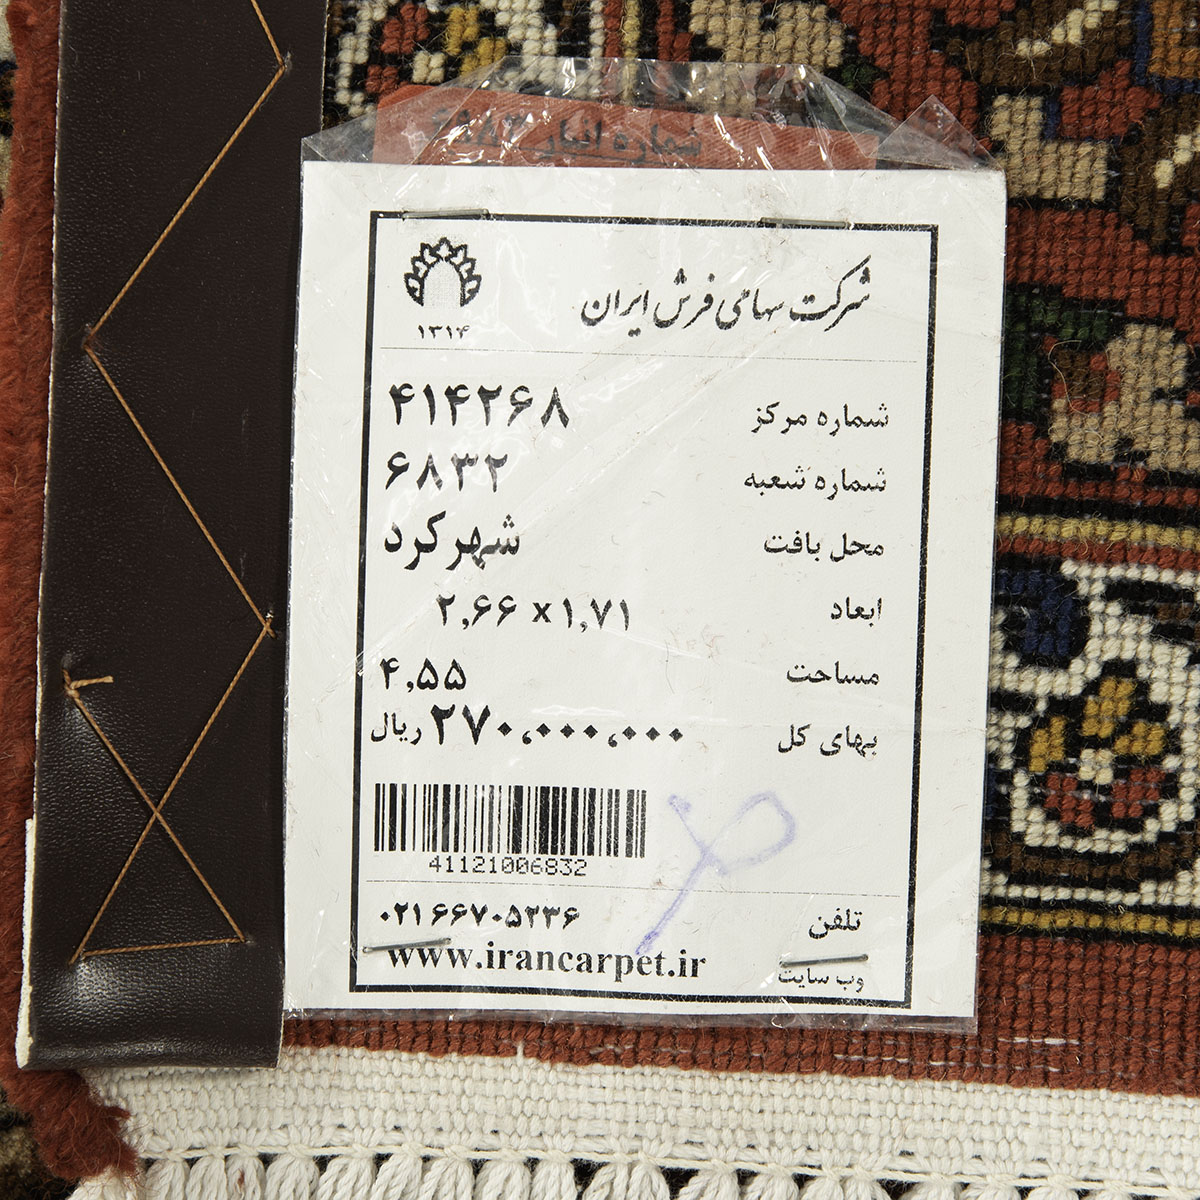 شماره انبار
۱۳۱۴
شرکت سهامی فرش ایران
شماره مرکز ۴۱۴۲۶۸
شماره شعبه ۶۸۳۲
محل بافت شهرکرد
ابعاد ۲,۶۶ x ۱,۷۱
مساحت ۴,۵۵
بهای کل ۲۷۰,۰۰۰,۰۰۰ ریال
41121006832
تلفن ۰۲۱۶۶۷۰۵۲۳۶
وب سایت www.irancarpet.ir